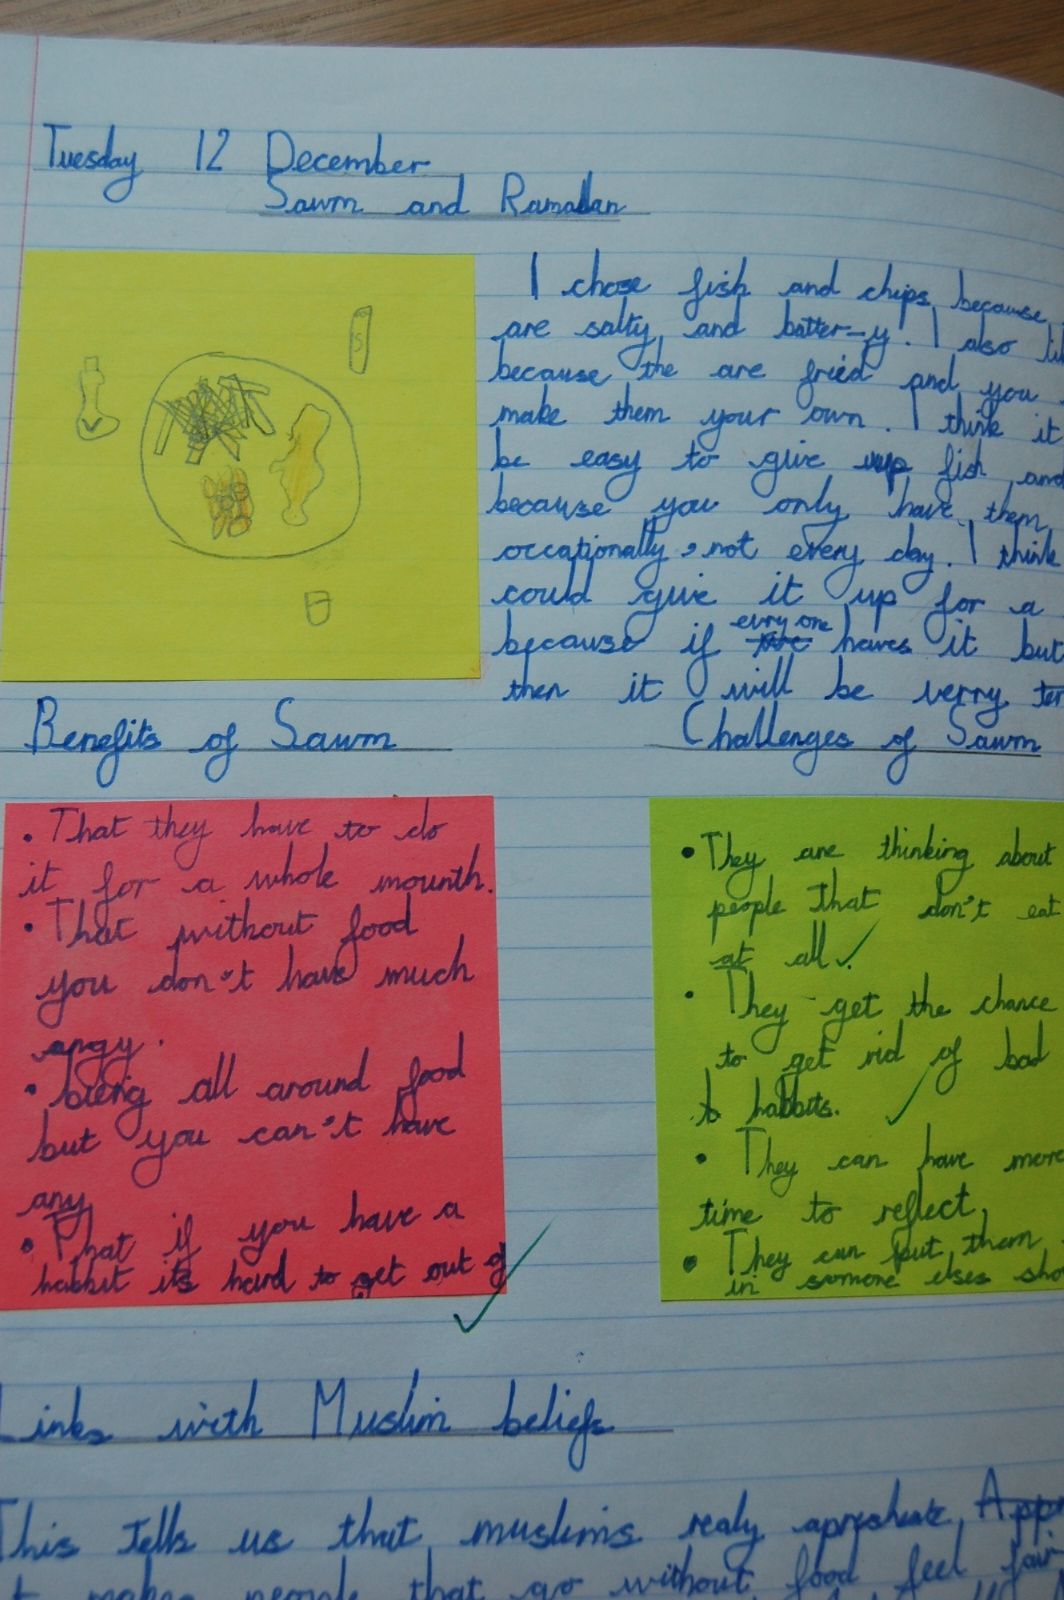 Tuesday 12 December
Sawm and Ramadan
I chose fish and chips because
are salty and batter-y! I also
because the are fried and you
make them your own. I think it
be easy to give up fish and
because you only have them
occationally, not every day. I think
could give it up for a
because if evry one haves it but
then it will be verry
Benefits of Sawm
Challenges of Sawm
• That they have to do
it for a whole mounth.
• That without food
you don't have much
angy.
• bieng all around food
but you can't have
any
• That if you have a
habbit it's hard to get out of
• They are thinking about
people that don't eat
at all.
• They get the chance
to get rid of bad
habbits.
• They can have more
time to reflect.
• They can put them
in somone elses
Links with Muslim beliefs
This tells us that muslims realy apreshate
makes people that go without food feel